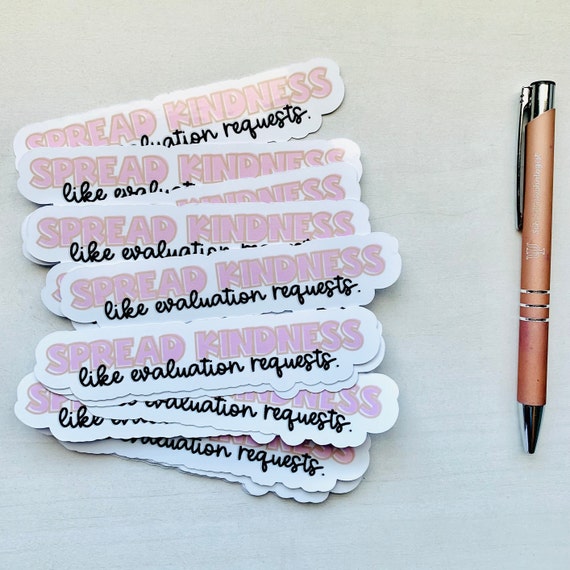 SPREAD KINDNESS
like evaluation requests.
SPREAD KINDNESS
like evaluation
SPREAD KINDNESS
like evaluation
SPREAD KINDNESS
like evaluation requests.
SPREAD KINDNESS
like evaluation requests.
like evaluation requests.
evaluation requests.